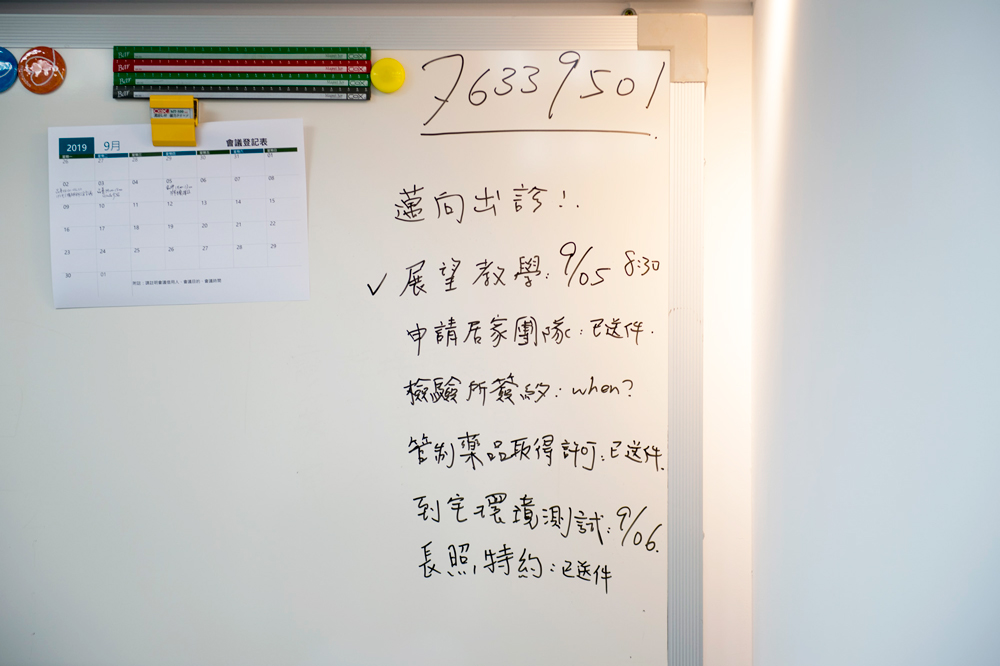 76339501
邁向出診!!
✓ 展望教學: 9/05 8:30
申請居家團隊: 已送件.
檢驗所簽約: when?
管制藥品取得許可: 已送件.
到宅環境測試: 9/06.
長照特約: 已送件
2019 9月 會議登記表
26 27 28 29 30 31 01
02 03 04 05 06 07 08
09 10 11 12 13 14 15
16 17 18 19 20 21 22
23 24 25 26 27 28 29
30 01